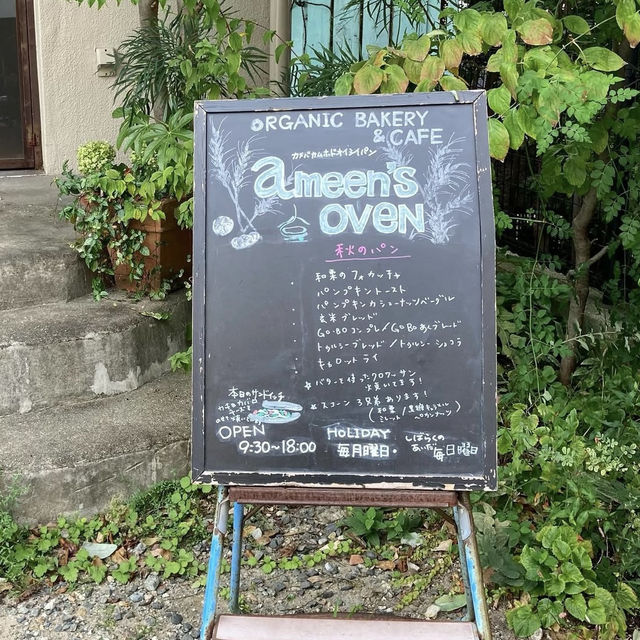 ORGANIC BAKERY
& CAFE
カメバカムホドオイシイパン
ameen's
OVEN
秋のパン
和栗のフォカッチャ
パンプキントースト
パンプキンカシューナッツベーグル
玄米ブレッド
GOBOコンプレ/GOBOあんブレード
トゥルシーブレッド/トゥルシーショコラ
キャロットライ
*バターを使ったクロワッサン
焼いてます!
*スコーン3兄弟あります!
本日のサンドイッチ
OPEN
9:30~18:00
HOLIDAY
毎月曜日・
しばらくの
あいだ
毎日曜